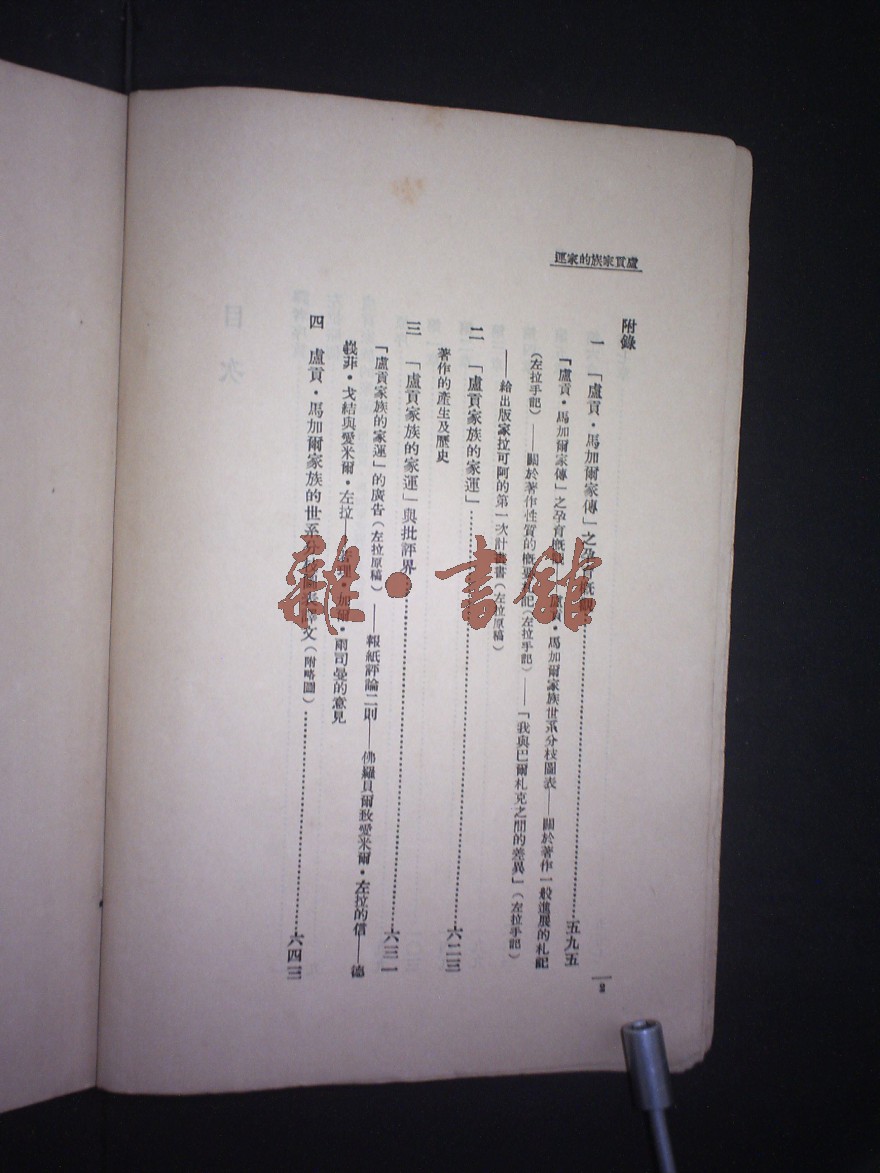 盧貢家族的家運
附錄
一 「盧貢・馬加爾家傳」之孕育概觀……五九五
「盧貢・馬加爾家傳」之孕育概觀——盧貢・馬加爾家族世系分枝圖表——關於著作一般進展的札記
(左拉手記)——關於著作性質的概要札記(左拉手記)——「我與巴爾札克之間的差異」(左拉手記)
——給出版家拉可阿的第一次計畫書(左拉原稿)
二 「盧貢家族的家運」……六二三
著作的產生及歷史
三 「盧貢家族的家運」與批評界……六三一
「盧貢家族的家運」的廣告(左拉原稿)——報紙評論二則——佛羅貝爾致愛米爾・左拉的信——德
菲・戈結與愛米爾・左拉——加爾・兩司曼的意見
四 盧貢・馬加爾家族的世系分枝圖表譯文(附略圖)……六四三
2
目次
雜・書館